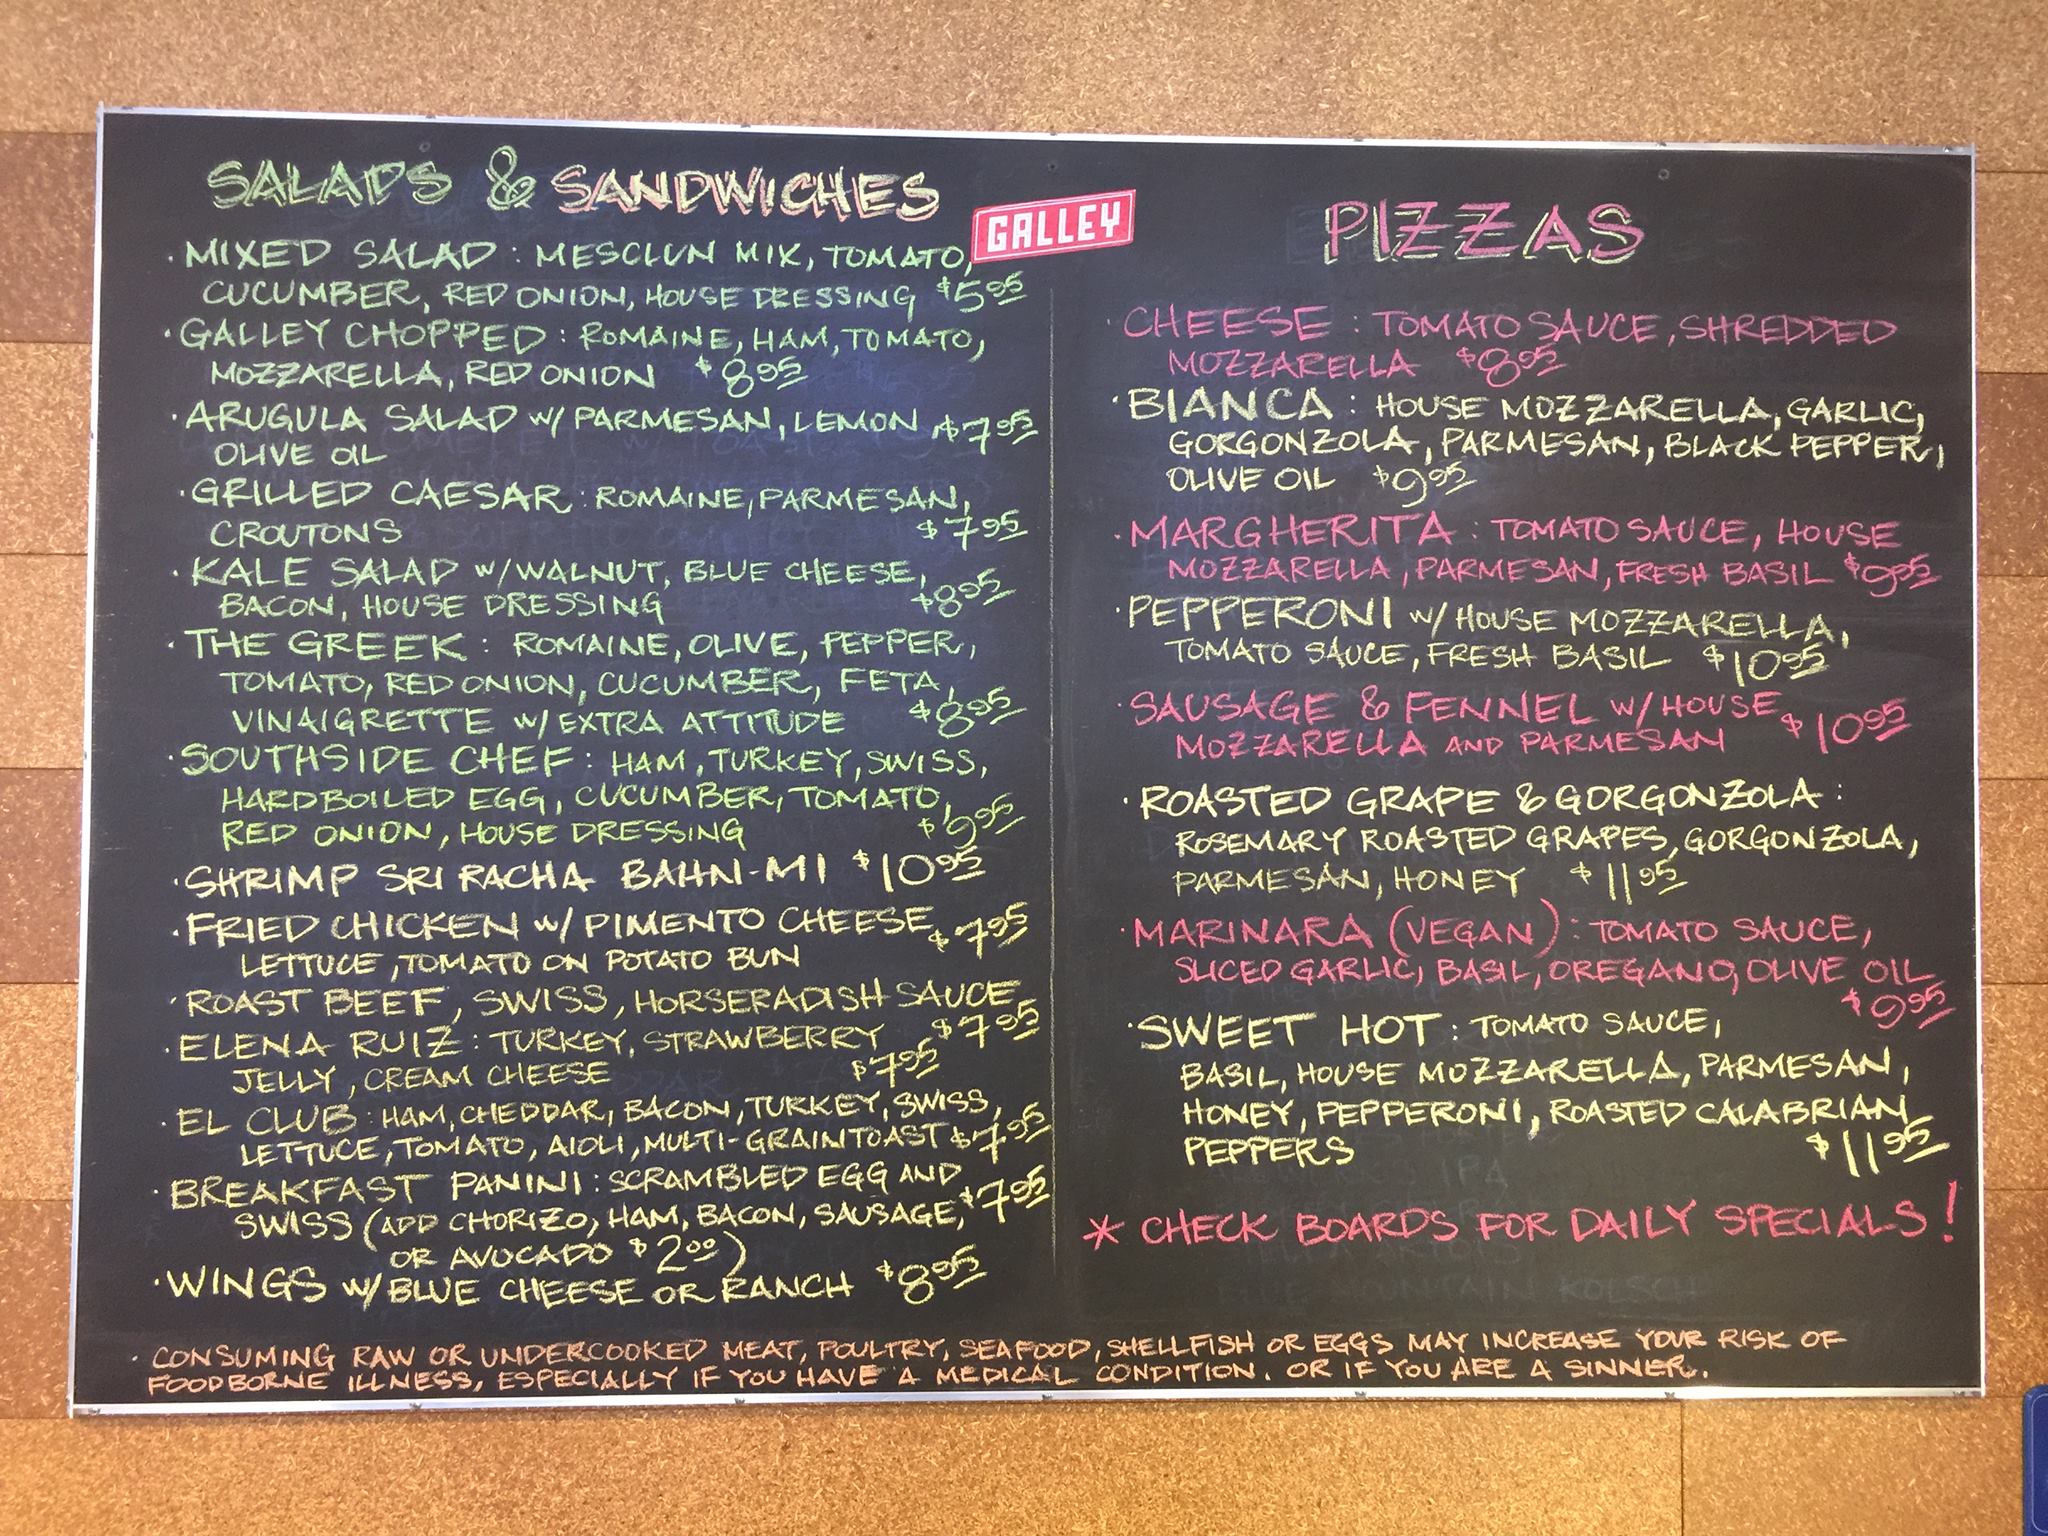 SALADS & SANDWICHES
· MIXED SALAD : MESCLUN MIX, TOMATO,
CUCUMBER, RED ONION, HOUSE DRESSING $5.95
· GALLEY CHOPPED : ROMAINE, HAM, TOMATO,
MOZZARELLA, RED ONION $8.95
· ARUGULA SALAD W/ PARMESAN, LEMON, $7.95
OLIVE OIL
· GRILLED CAESAR : ROMAINE, PARMESAN,
CROUTONS $7.95
· KALE SALAD W/ WALNUT, BLUE CHEESE,
BACON, HOUSE DRESSING $8.95
· THE GREEK : ROMAINE, OLIVE, PEPPER,
TOMATO, RED ONION, CUCUMBER, FETA,
VINAIGRETTE W/ EXTRA ATTITUDE $8.95
· SOUTHSIDE CHEF : HAM, TURKEY, SWISS,
HARDBOILED EGG, CUCUMBER, TOMATO,
RED ONION, HOUSE DRESSING $9.95
· SHRIMP SRI RACHA BAHN-MI $10.95
· FRIED CHICKEN W/ PIMENTO CHEESE, $7.95
LETTUCE, TOMATO ON POTATO BUN
· ROAST BEEF, SWISS, HORSERADISH SAUCE $7.95
· ELENA RUIZ : TURKEY, STRAWBERRY
JELLY, CREAM CHEESE $7.95
· EL CLUB : HAM, CHEDDAR, BACON, TURKEY, SWISS,
LETTUCE, TOMATO, AIOLI, MULTI-GRAIN TOAST $7.95
· BREAKFAST PANINI : SCRAMBLED EGG AND
SWISS (ADD CHORIZO, HAM, BACON, SAUSAGE, $7.95
OR AVOCADO $2.00)
· WINGS W/ BLUE CHEESE OR RANCH $8.95
GALLEY
PIZZAS
· CHEESE : TOMATO SAUCE, SHREDDED
MOZZARELLA $8.95
· BIANCA : HOUSE MOZZARELLA, GARLIC,
GORGONZOLA, PARMESAN, BLACK PEPPER,
OLIVE OIL $9.95
· MARGHERITA : TOMATO SAUCE, HOUSE
MOZZARELLA, PARMESAN, FRESH BASIL $9.95
· PEPPERONI W/ HOUSE MOZZARELLA,
TOMATO SAUCE, FRESH BASIL $10.95
· SAUSAGE & FENNEL W/ HOUSE
MOZZARELLA AND PARMESAN $10.95
· ROASTED GRAPE & GORGONZOLA :
ROSEMARY ROASTED GRAPES, GORGONZOLA,
PARMESAN, HONEY $11.95
· MARINARA (VEGAN) : TOMATO SAUCE,
SLICED GARLIC, BASIL, OREGANO, OLIVE OIL
$9.95
· SWEET HOT : TOMATO SAUCE,
BASIL, HOUSE MOZZARELLA, PARMESAN,
HONEY, PEPPERONI, ROASTED CALABRIAN
PEPPERS $11.95
* CHECK BOARDS FOR DAILY SPECIALS!
· CONSUMING RAW OR UNDERCOOKED MEAT, POULTRY, SEAFOOD, SHELLFISH OR EGGS MAY INCREASE YOUR RISK OF
FOODBORNE ILLNESS, ESPECIALLY IF YOU HAVE A MEDICAL CONDITION. OR IF YOU ARE A SINNER.